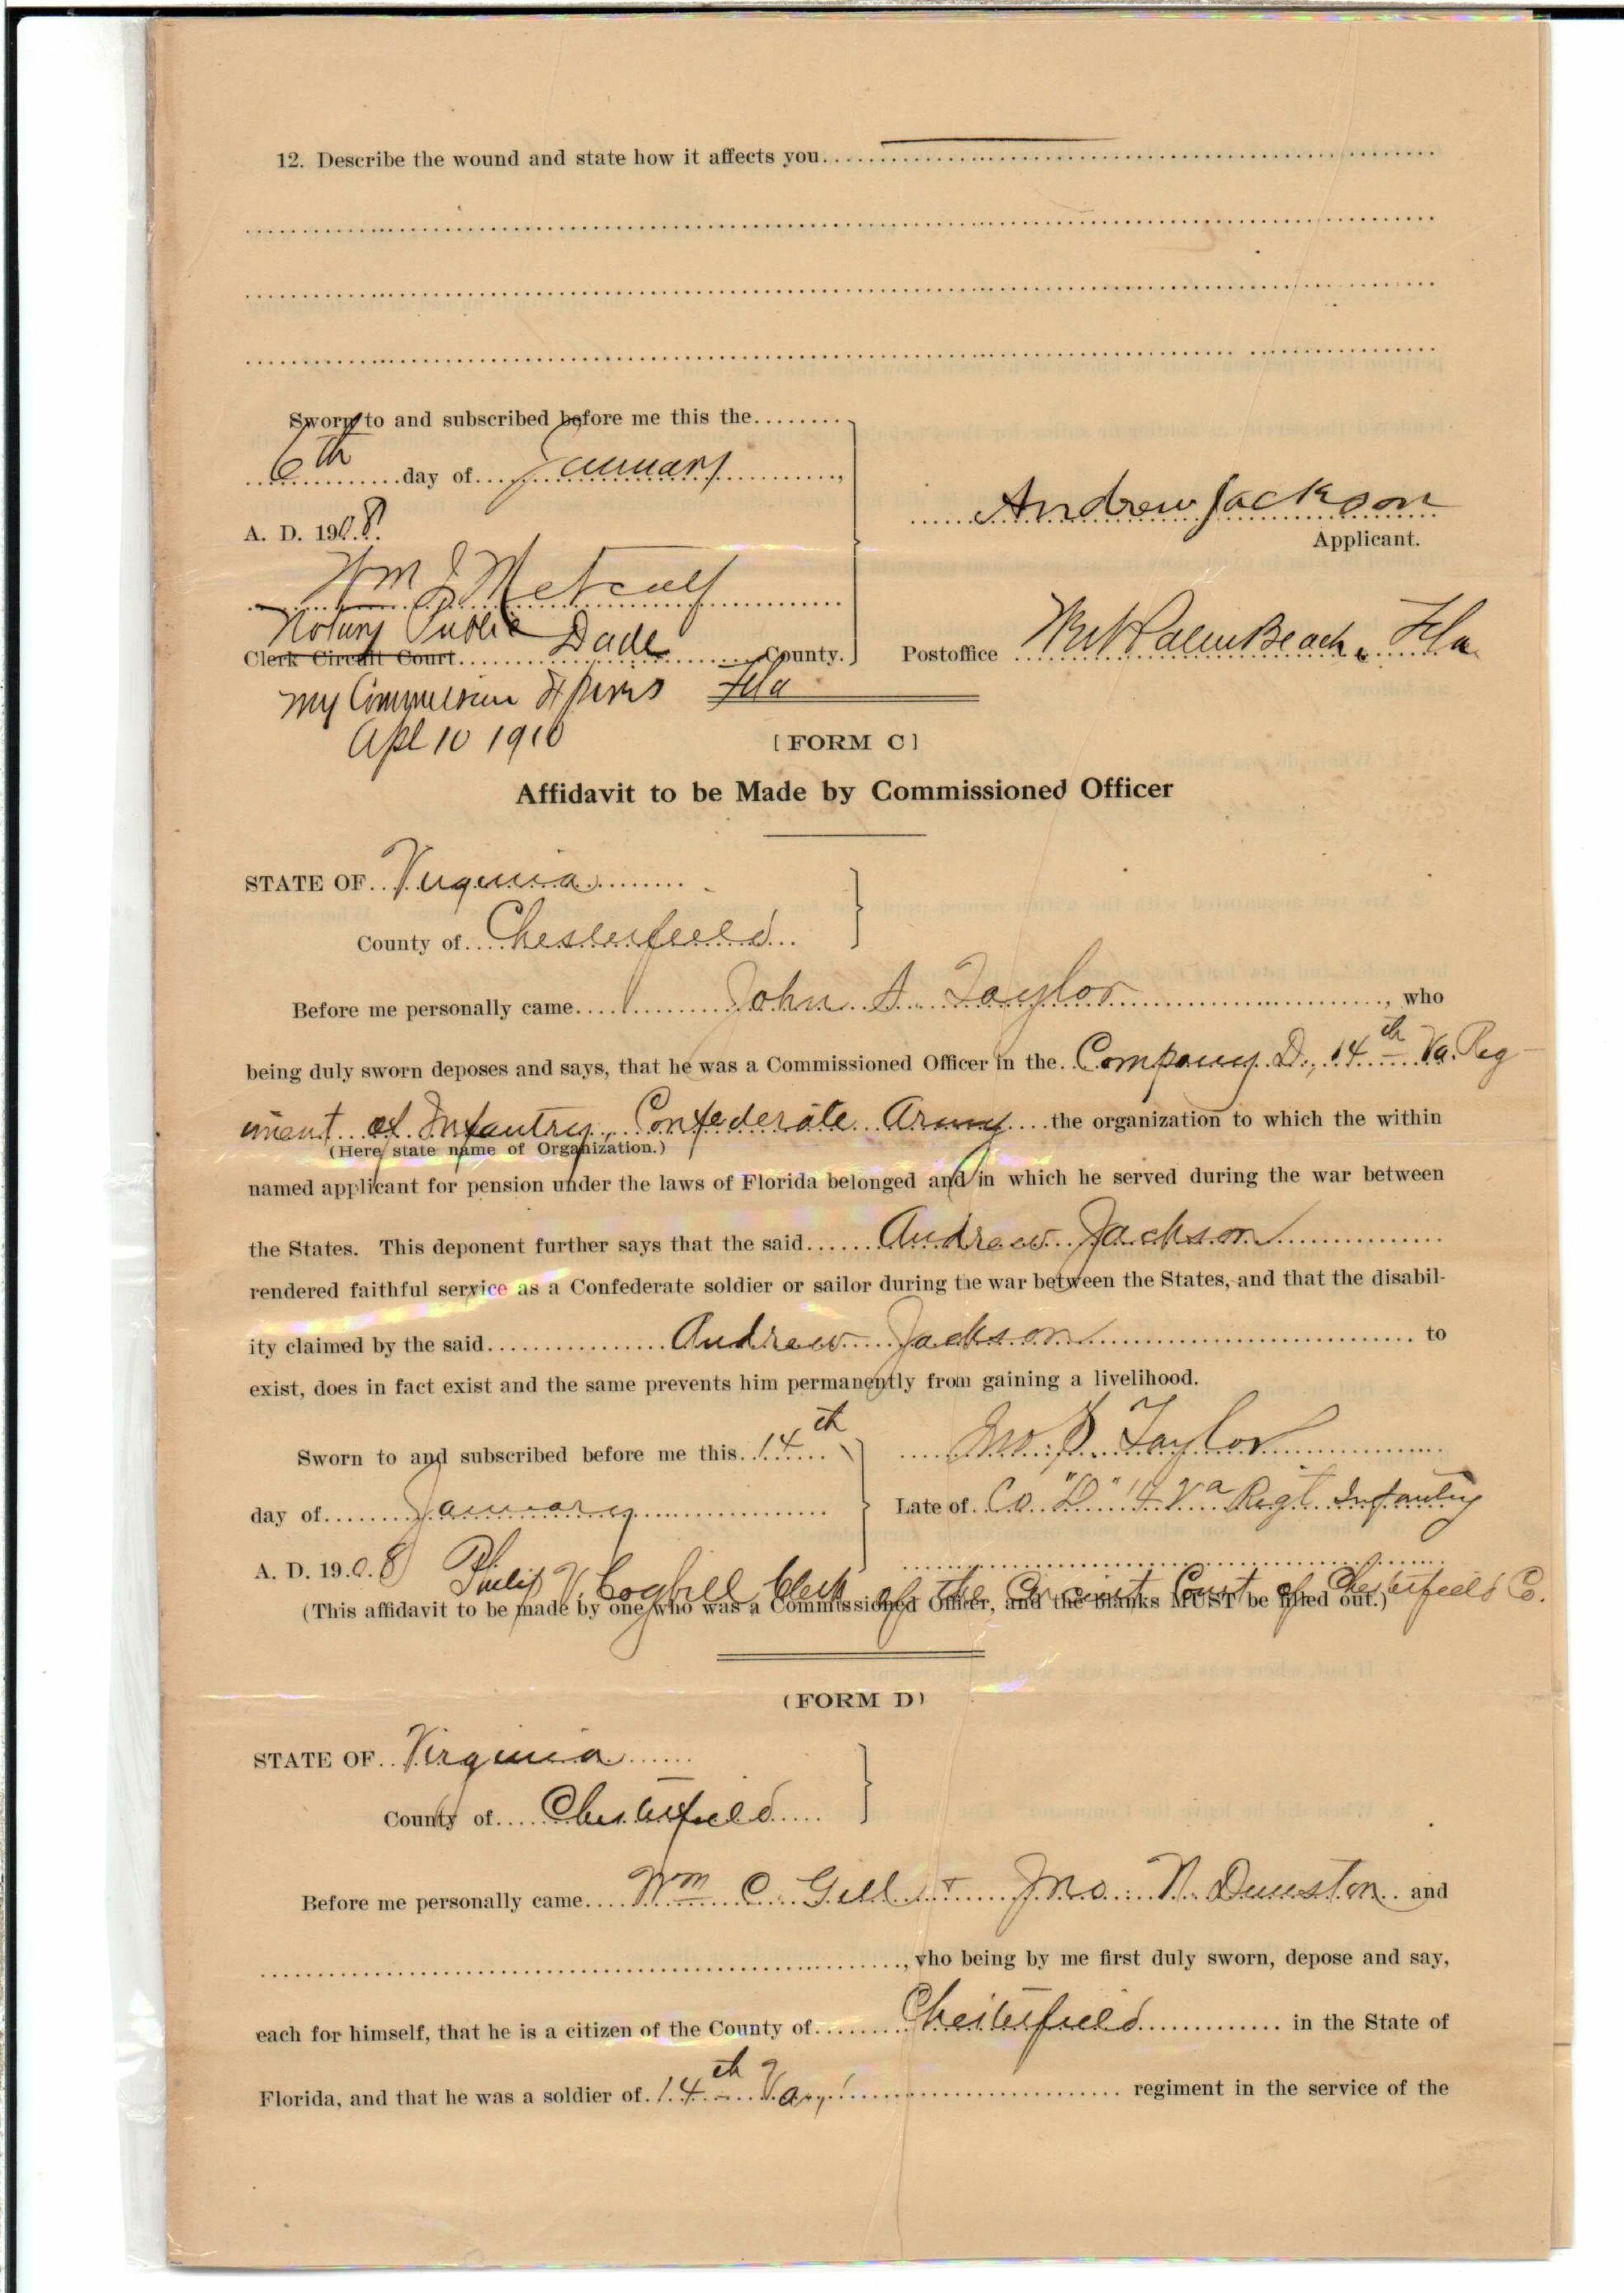 12. Describe the wound and state how it affects you
Sworn to and subscribed before me this the
6th day of January,
A. D. 1908.
Wm J Metcalf
Notary Public
Clerk Circuit Court Dade County.
Fla
My Commission Expires
Apl 10 1910
Andrew Jackson
Applicant.
Postoffice West Palm Beach, Fla.
[FORM C]
Affidavit to be Made by Commissioned Officer
STATE OF Virginia
County of Chesterfield
Before me personally came John A. Taylor, who
being duly sworn deposes and says, that he was a Commissioned Officer in the Company D, 14th Va. Reg
iment of Infantry, Confederate Army the organization to which the within
(Here state name of Organization.)
named applicant for pension under the laws of Florida belonged and in which he served during the war between
the States. This deponent further says that the said Andrew Jackson
rendered faithful service as a Confederate soldier or sailor during the war between the States, and that the disabil-
ity claimed by the said Andrew Jackson to
exist, does in fact exist and the same prevents him permanently from gaining a livelihood.
Sworn to and subscribed before me this 14th
day of January
A. D. 1908
Jno. Taylor
Late of Co. "D" 14 Va Regt. Infantry
Philip V. Cogbill Clerk of the Circuit Court of Chesterfield Co.
(This affidavit to be made by one who was a Commissioned Officer, and the blanks MUST be filled out.)
(FORM D)
STATE OF Virginia
County of Chesterfield
Before me personally came Wm C. Gill & Jno. N. Dunston and
, who being by me first duly sworn, depose and say,
each for himself, that he is a citizen of the County of Chesterfield in the State of
Florida, and that he was a soldier of 14th Va. regiment in the service of the